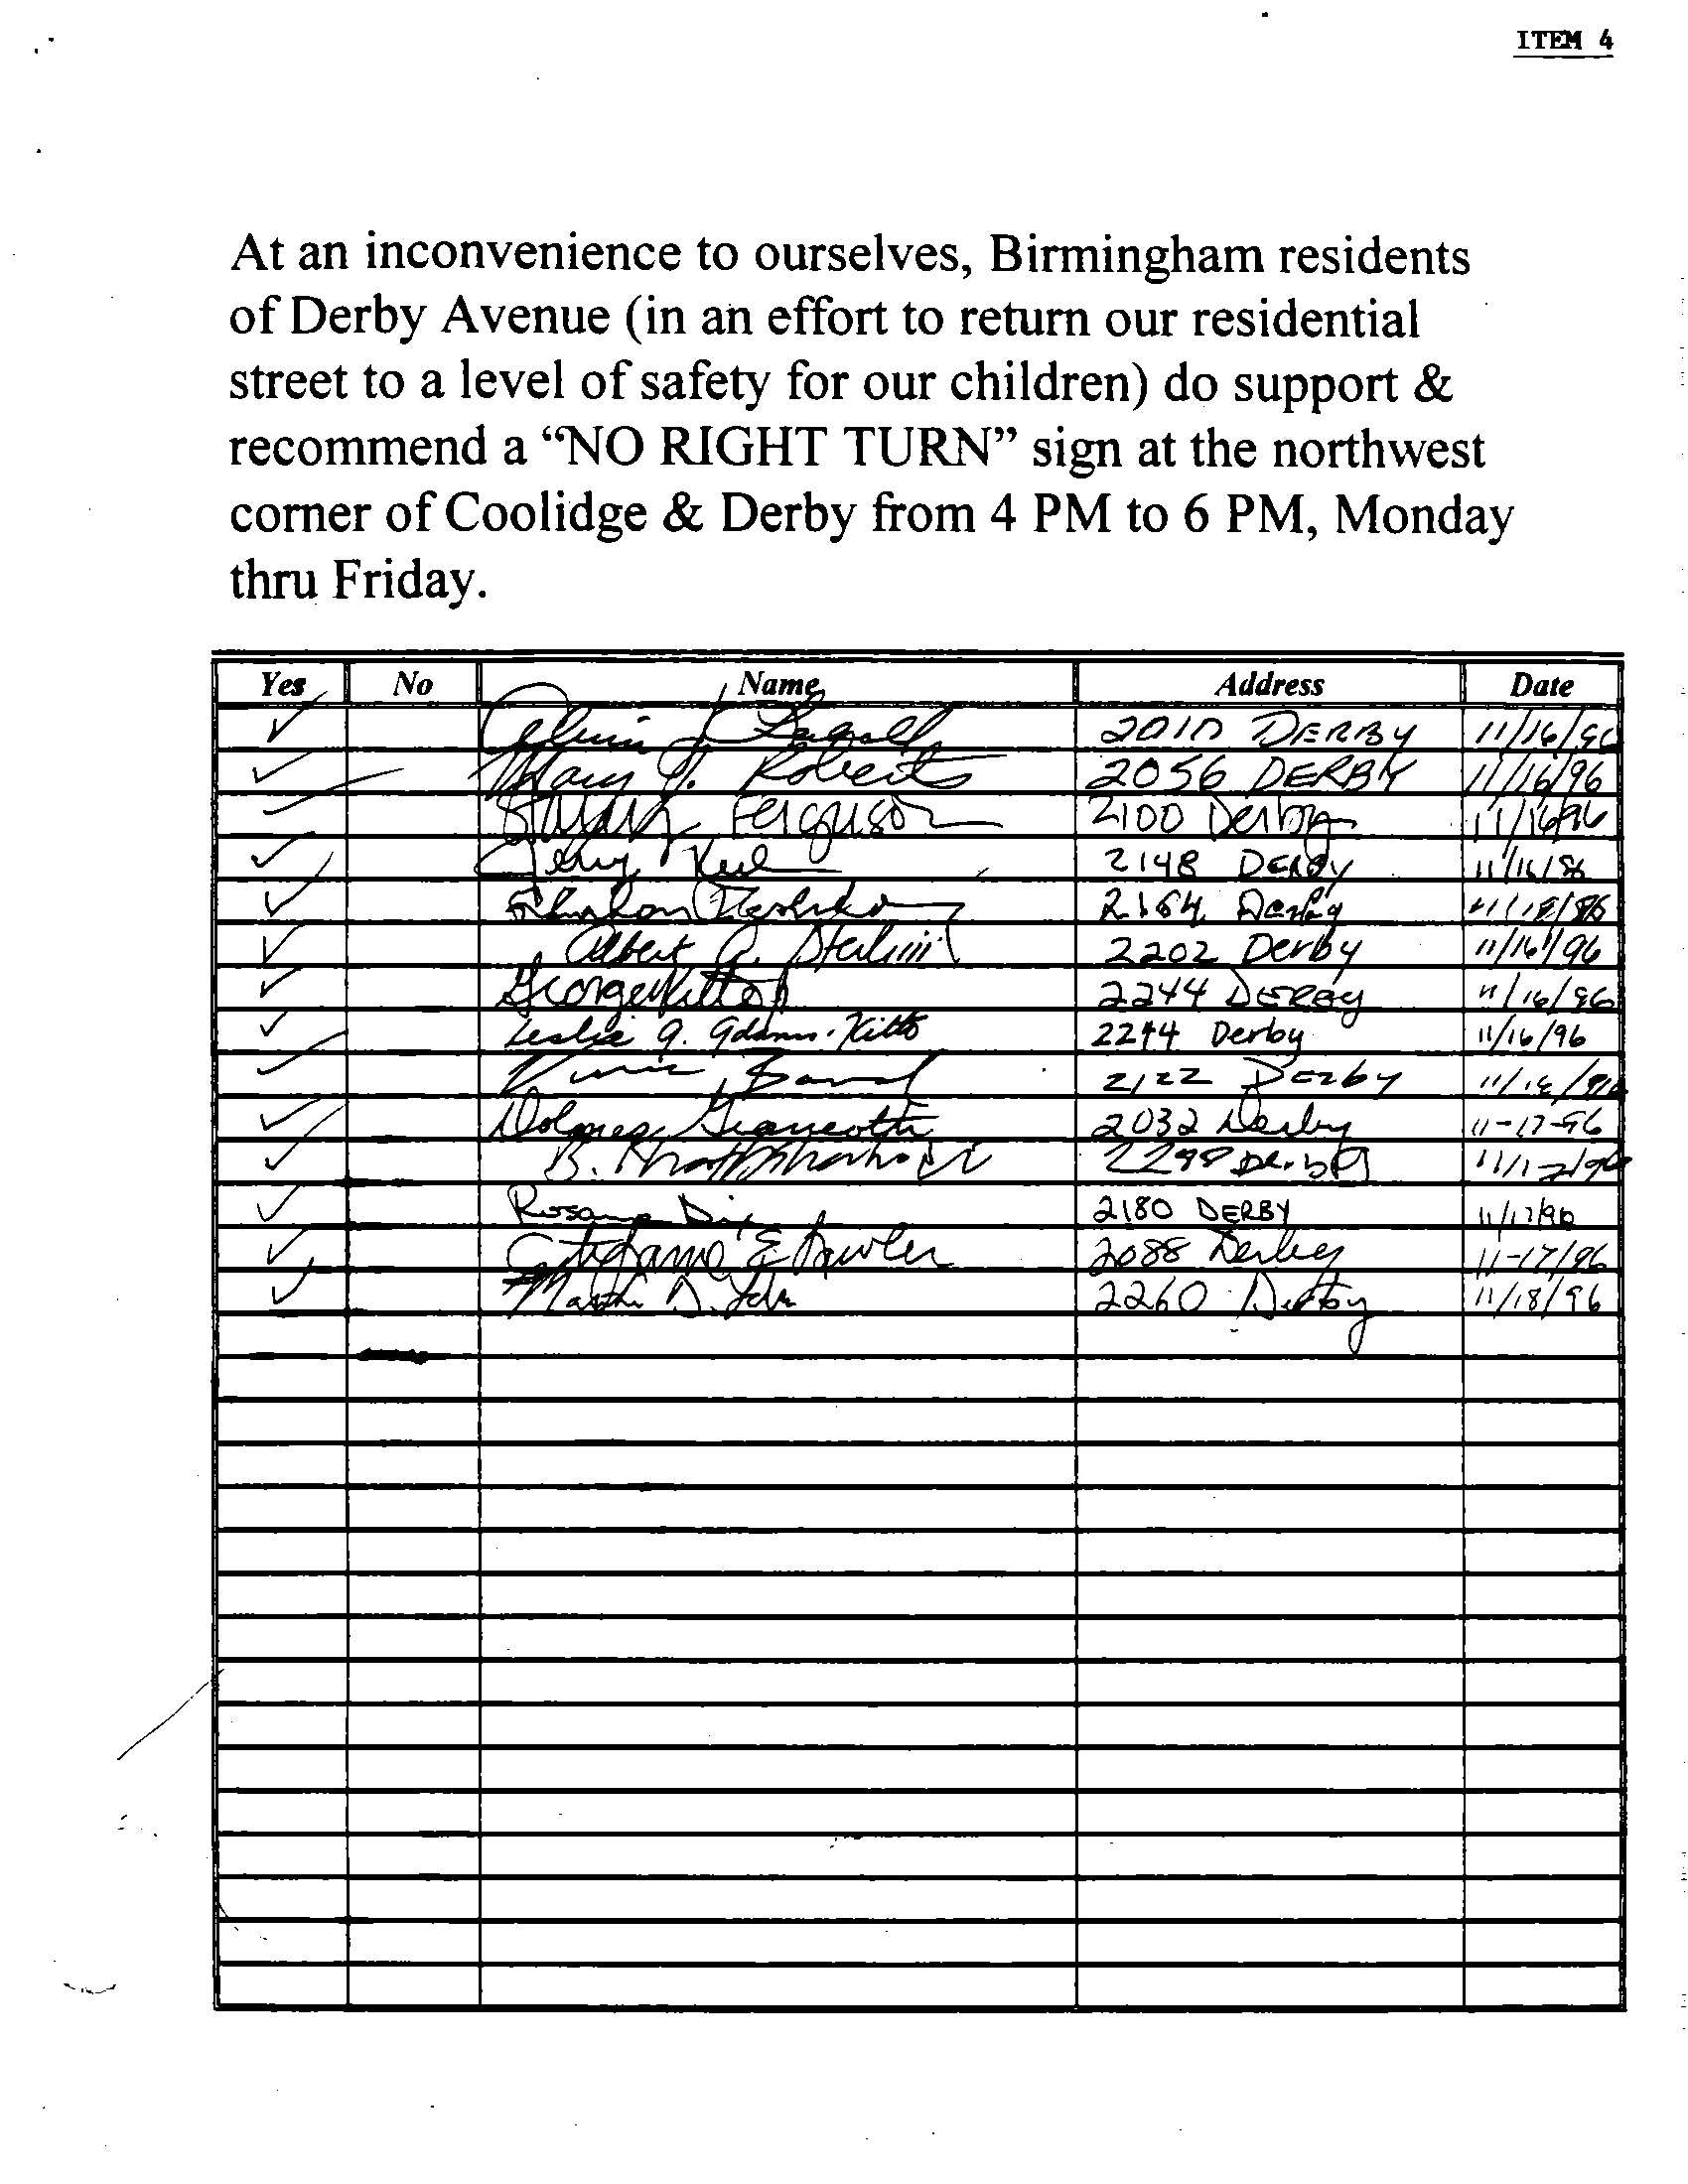 ITEM 4
At an inconvenience to ourselves, Birmingham residents
of Derby Avenue (in an effort to return our residential
street to a level of safety for our children) do support &
recommend a “NO RIGHT TURN” sign at the northwest
corner of Coolidge & Derby from 4 PM to 6 PM, Monday
thru Friday.
Yes No Name Address Date
✓ 2010 DERBY 11/16/96
✓ Mary J. Roberts 2056 DERBY 11/16/96
✓ Ferguson 2100 Derby 11/16/96
✓ Jerry 2148 DERBY 11/16/96
✓ Sharon 2164 Derby 11/18/96
✓ Albert A. 2202 Derby 11/16/96
✓ George Kitto 2244 DERBY 11/16/96
✓ Leslie A. Adams-Kitto 2244 Derby 11/16/96
✓ 2122 Derby 11/16/96
✓ Dolores Giancotti 2032 Derby 11-17-96
✓ B. Derby 11/17/96
✓ Rosanne Dix 2180 DERBY 11/17/96
✓ Stephanie E Fowler 2088 Derby 11-17/96
✓ Martha D. 2260 Derby 11/18/96